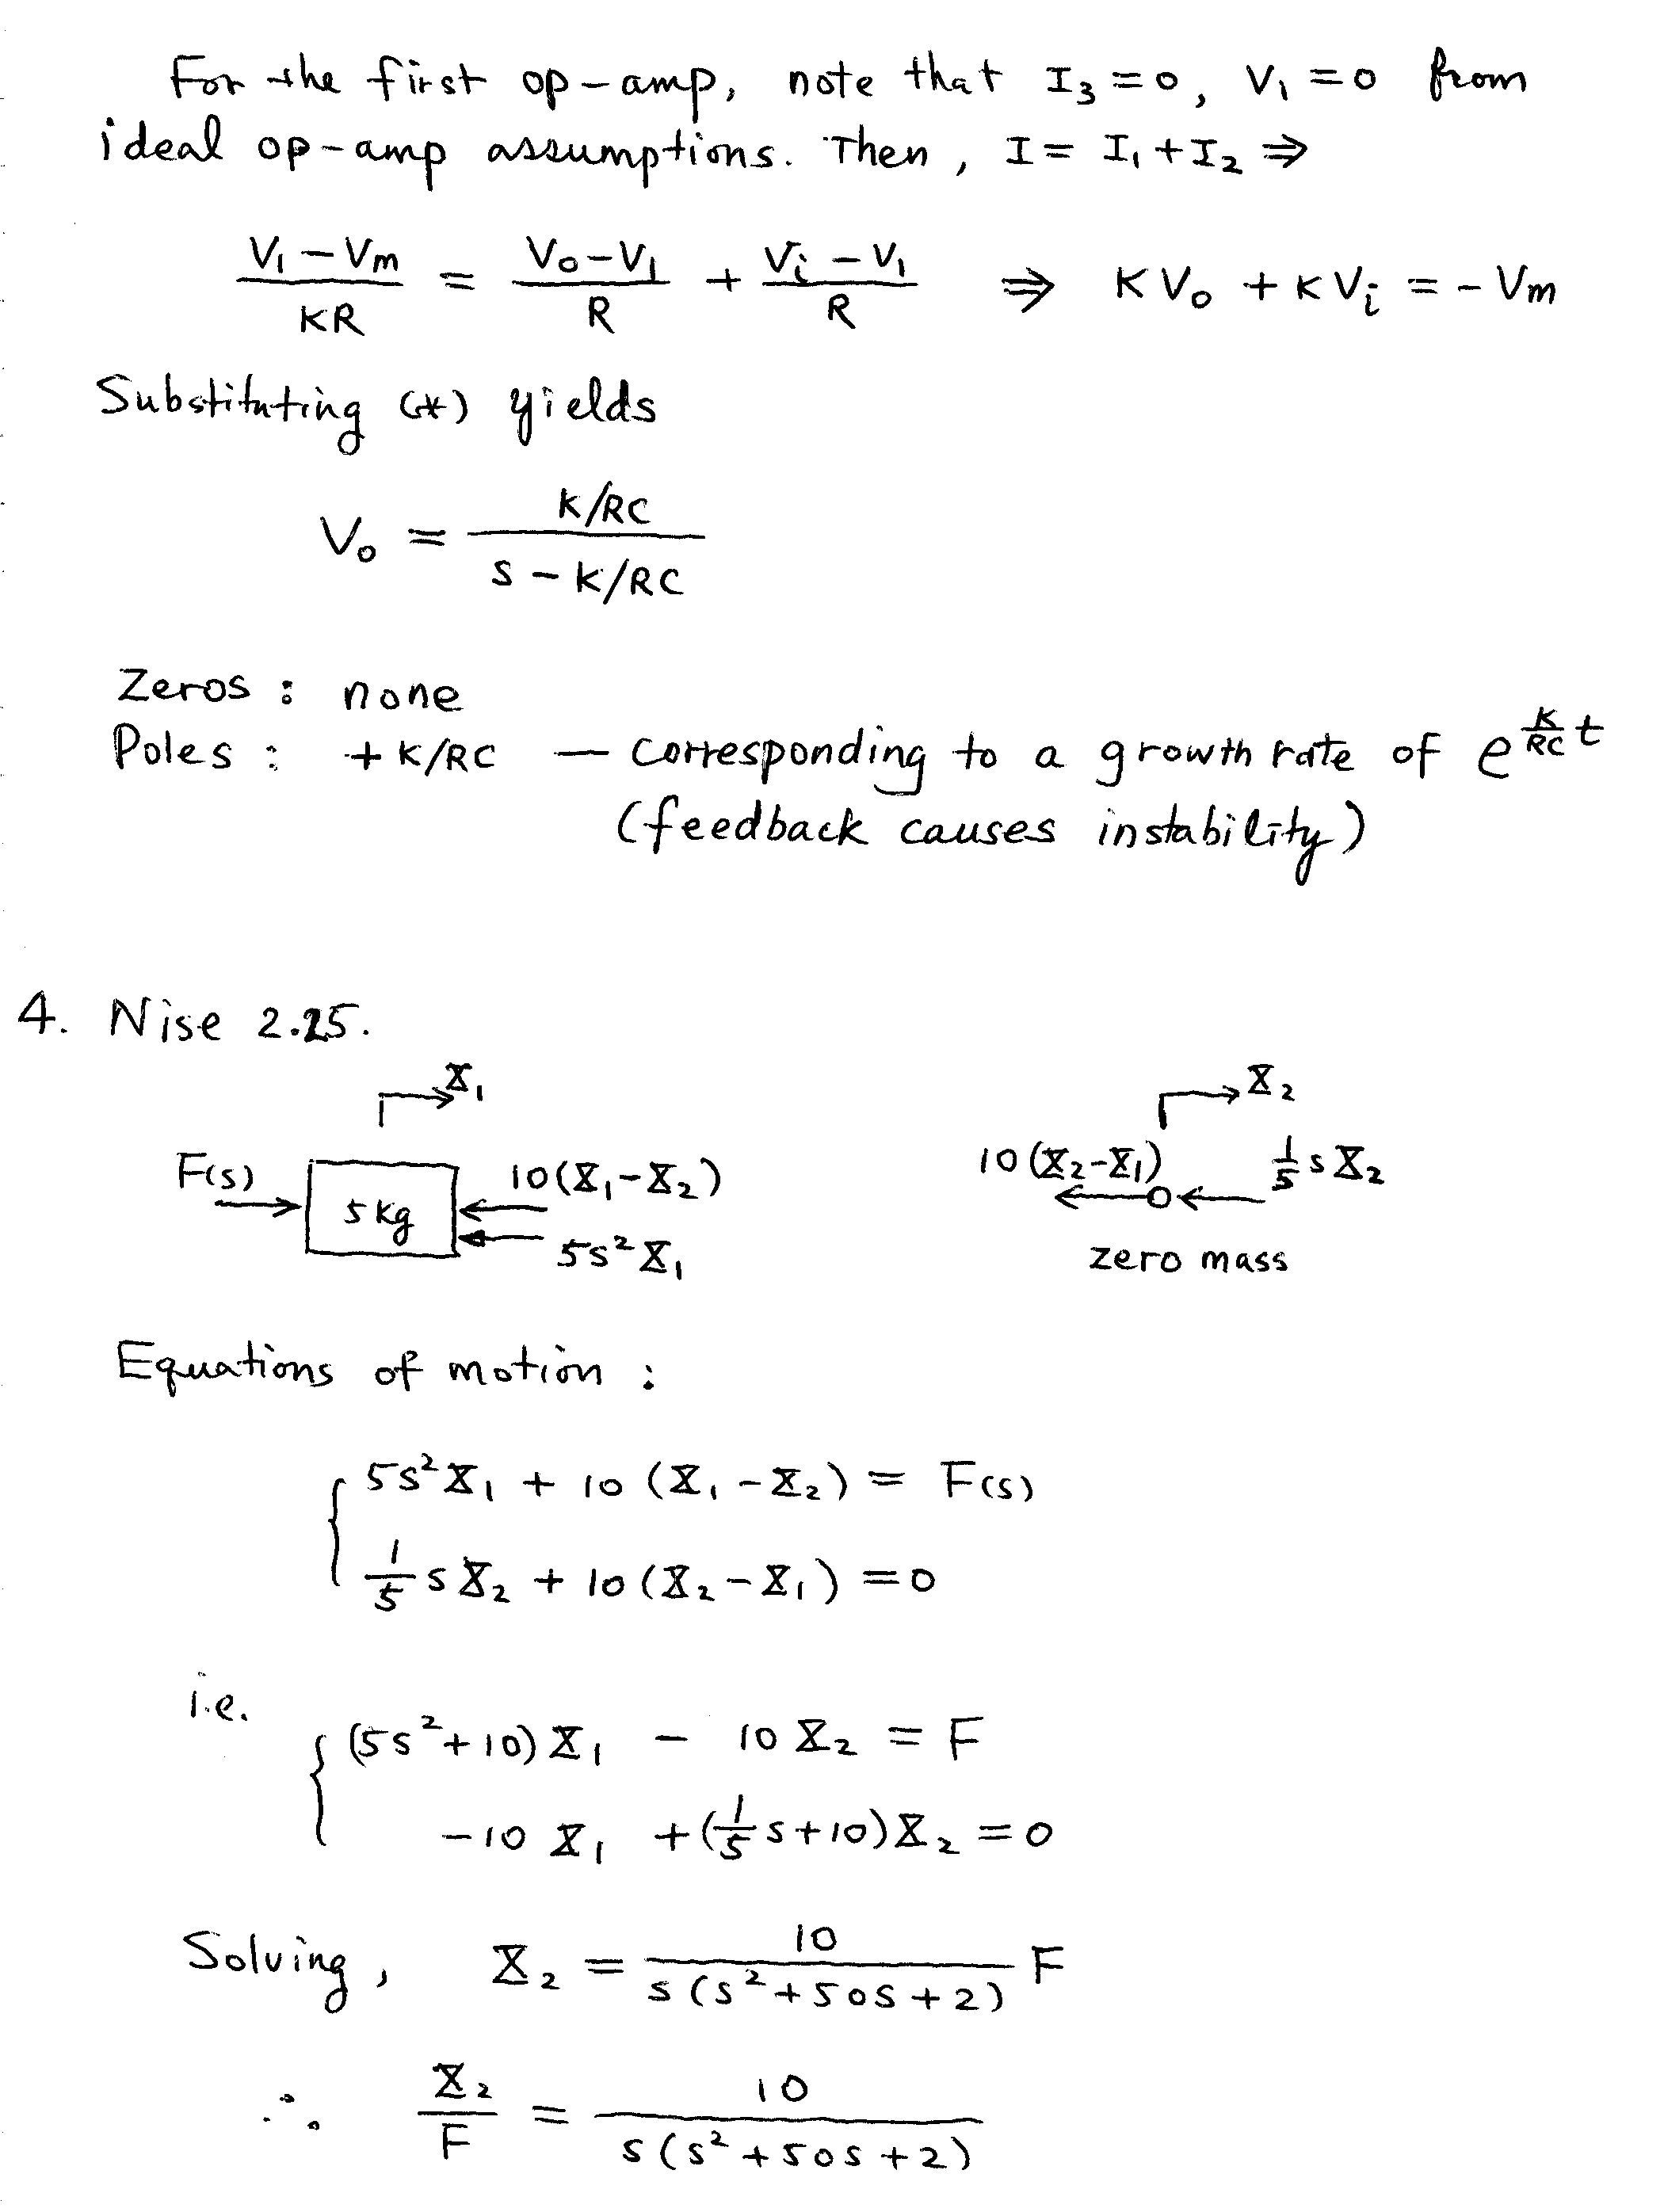 For the first op-amp, note that I₃ = 0, V₁ = 0 from
ideal op-amp assumptions. Then, I = I₁ + I₂ ⇒
(V₁ - Vm)/KR = (Vo - V₁)/R + (Vi - V₁)/R ⇒ KVo + KVi = -Vm
Substituting (*) yields
Vo = (K/RC)/(s - K/RC)
Zeros : none
Poles : + K/RC — corresponding to a growth rate of e^(K/RC t)
(feedback causes instability)
4. Nise 2.25.
X₁ X₂
F(s) 5 kg 10(X₁-X₂) 10(X₂-X₁) 1/5 s X₂
5s²X₁ zero mass
Equations of motion :
5s²X₁ + 10(X₁ - X₂) = F(s)
1/5 s X₂ + 10(X₂ - X₁) = 0
i.e.
(5s²+10)X₁ - 10X₂ = F
-10X₁ + (1/5 s+10)X₂ = 0
Solving, X₂ = 10/(s(s²+50s+2)) F
∴ X₂/F = 10/(s(s²+50s+2))